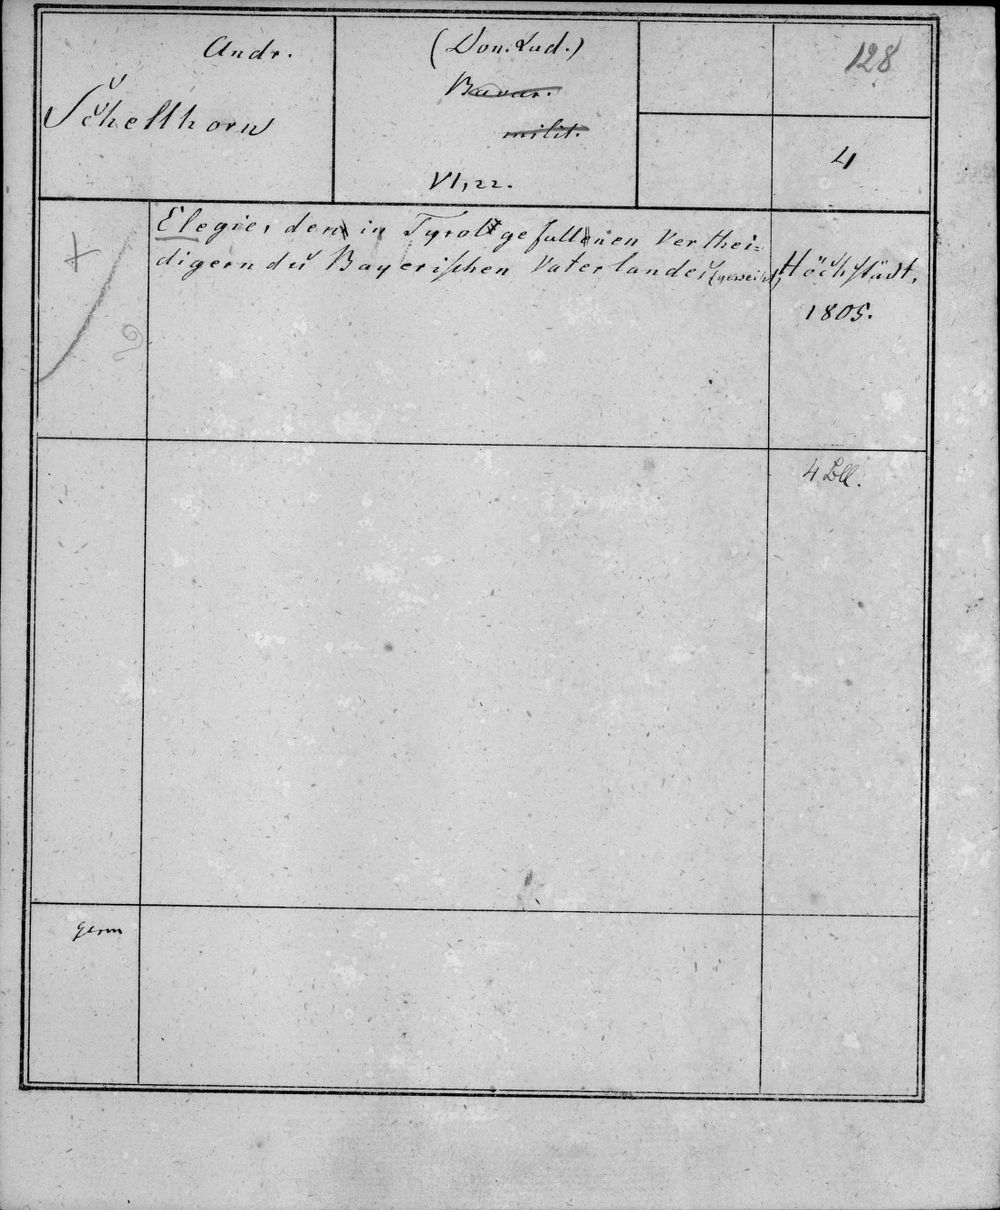 Andr.
Schellhorn
(Don. Lud.)
Bavar.
milit.
VI, 22.
128
4
Elegie, den in Tyrol gefallenen Verthei=
digern des Bayerischen Vaterlandes (geweiht)
Höchstädt,
1805.
4 Bll.
germ